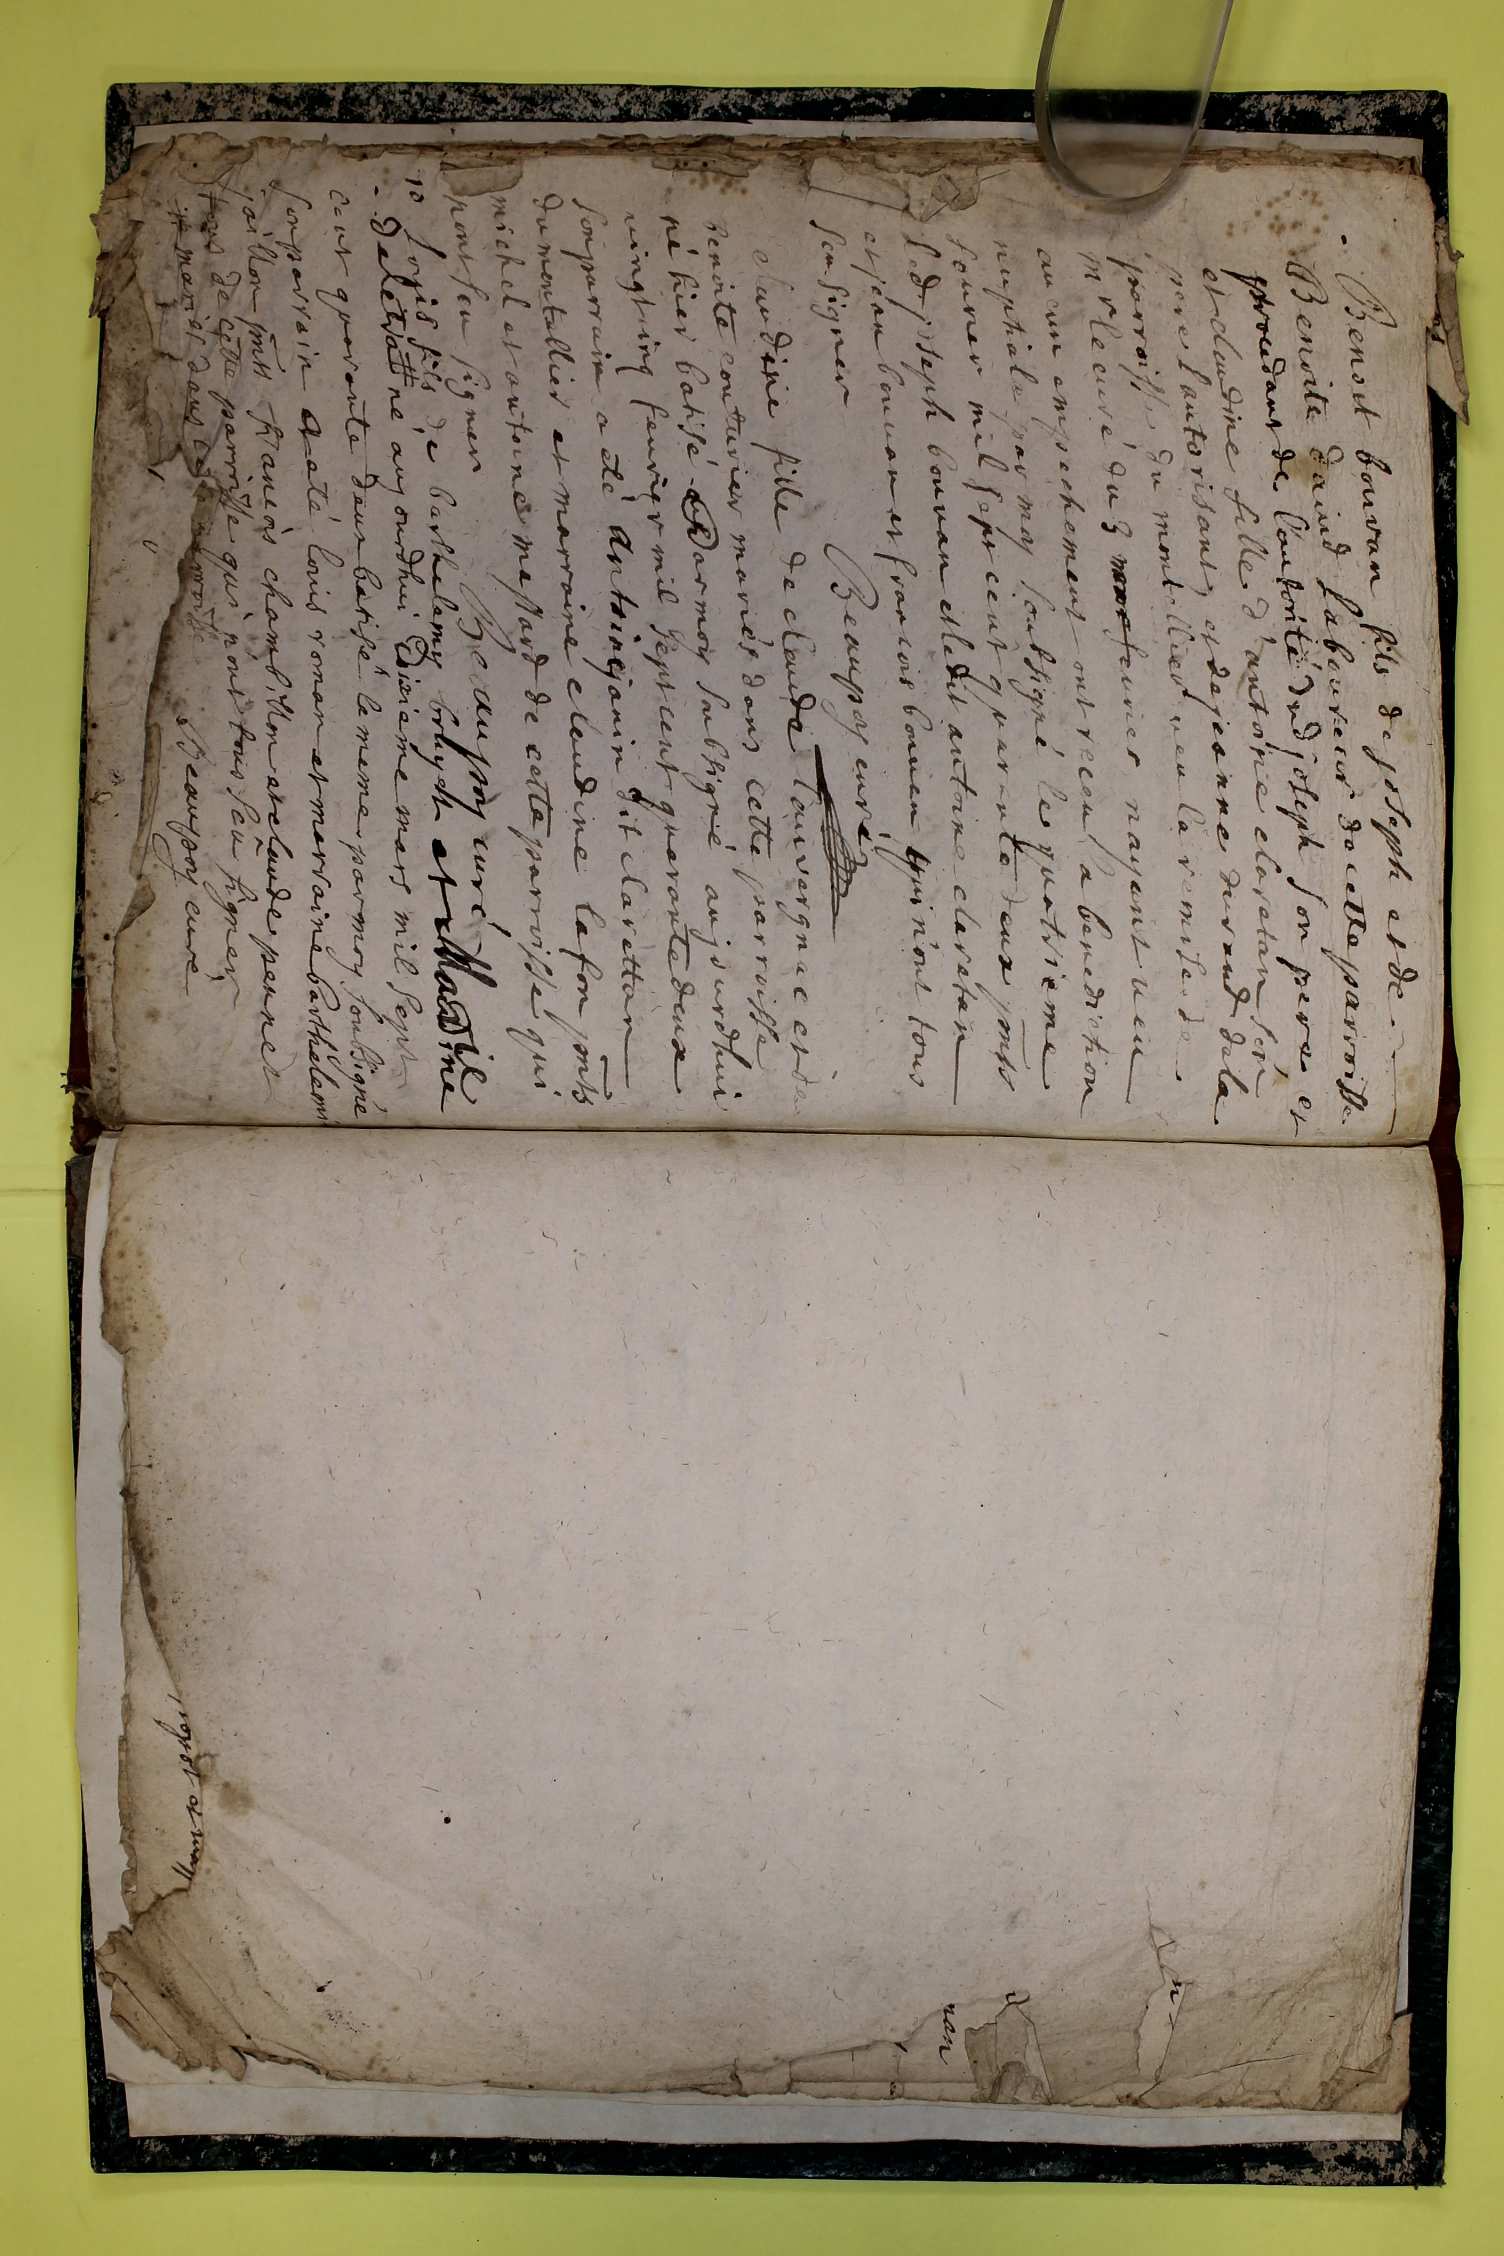 Benoit bouvan fils de joseph et de
Benoite daind laboureur de cette parroisse
procedant de l'autorité dud joseph son pere et
et claudine fille d'antoine claretan son
pere l'autorisant et de jeanne durand de la
parroisse du montellier veu la remise de
mr le curé du 3 fevrier nayant veu
aucun empechement ont receu la benediction
nuptiale par moy soubsigné le quatrieme
fevrier mil sept cent quarante deux pnts
led joseph bouvan et ledit antoine claretan
et jean bouvan et francois bouvan qui n'ont tous
sceu signer Beaupoy curé
claudine fille de claude lauvergnac et de
benoite couturier mariés dans cette parroisse
né hier batisé parmoy soubsigné aujourdhui
vingt cinq fevrier mil sept cent quarante deux
son parrain a été antoine janin dit clarettan
du montellier et marraine claudine lafon pnts
michel et antoine messard de cette parroisse qui
n'ont sceu signer Beaupoy curé
10 josis fils de barthelemy bruyet et Madelaine
Deletra né aujourdhui dixieme mars mil sept
cent quarante deux batisé le meme par moy soubsigné
son parrain a eté louis roman et marraine barthelemi
jaillon pnts francois chambillon et claude penet
tous de cette parroisse qui n'ont tous sceu signer
# mariés dans cette parroisse Beaupoy curé
ran